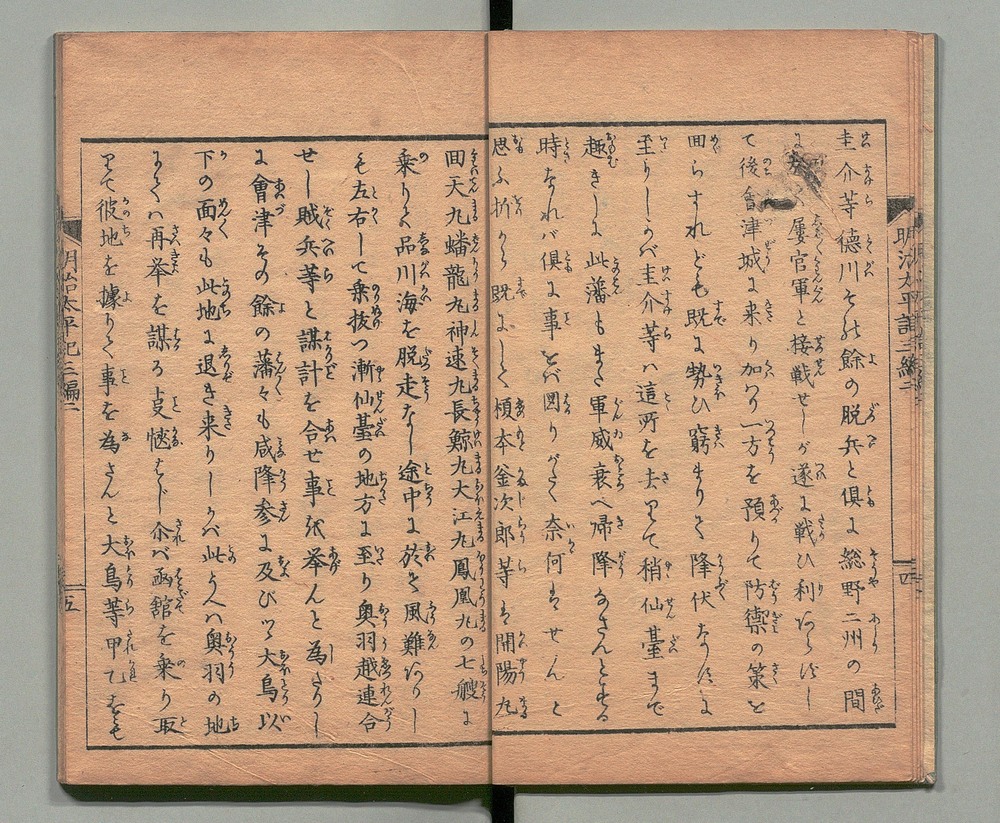 圭介等徳川その餘の脱兵と倶に総野二州の間
に屡官軍と接戦せしが遂に戦ひ利あらずし
て後會津城に来り加り一方を預りて防禦の策を
回らすれども既に勢ひ窮まりて降伏なすに
至りしかバ圭介等ハ這所を去りて稍仙臺まで
趣きしに此藩もまた軍威衰へ帰降なさんとする
時なれバ倶に事をバ図りがたく奈何はせんと
思ふ折から既にして榎本釜次郎等は開陽丸
回天丸蟠龍丸神速丸長鯨丸大江丸鳳凰丸の七艘に
乗りて品川海を脱走なし途中に於て風難ありし
も左右して乗抜つ漸仙臺の地方に至り奥羽越連合
せし賊兵等と謀計を合せ事を挙んと為たりし
に會津その餘の藩々も咸降参に及びつ大鳥以
下の面々も此地に退き来りしかバ此うへハ奥羽の地
にてハ再挙を謀る支愜はじ
バ函舘を乗り取
りて彼地を據りて事を為さんと大鳥等甲乙をも
明治太平記三編二
四
明治太平記三編二
五